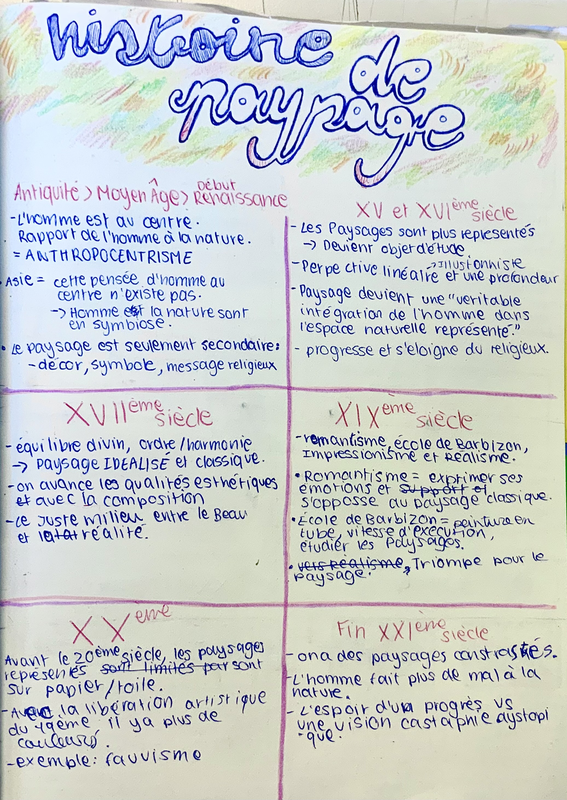 histoire de
paypage
Antiquité > Moyen Âge > Début Renaissance
- L'homme est au centre.
Rapport de l'homme à la nature.
= ANTHROPOCENTRISME
• Asie = cette pensée d'homme au
centre n'existe pas.
-> Homme est la nature sont
en symbiose.
• Le paysage est seulement secondaire:
- décor, symbole, message religieux
XV et XVIème siècle
- Les Paysages sont plus representés
-> Devient objet d'étude
- Perpective linéaire ->Illusionniste et une profondeur
- Paysage devient une "veritable
intégration de l'homme dans
l'espace naturelle représenté."
- progresse et s'eloigne du religieux.
XVIIème siècle
- équilibre divin, ordre/harmonie
-> paysage IDEALISÉ et classique.
- on avance les qualités esthétiques
et avec la composition
- Le juste milieu entre le Beau
et réalité.
XIXème siècle
- romantisme, école de Barbizon,
Impressionisme et Réalisme.
• Romantisme = exprimer ses
émotions et support et
s'oppose au paysage classique.
• École de Barbizon = peinture en
tube, vitesse d'execution,
étudier les paysages.
• vers réalisme, Triompe pour le
paysage.
XXeme
Avant le 20ème siècle, les paysages
représentés sont limités par sont
sur papier/toile.
- Avec la libération artistique
du 19ème il y a plus de
couleurs.
- exemple: fauvisme
Fin XXIème siècle
- on a des paysages constrastés.
- L'homme fait plus de mal à la
nature.
- L'espoir d'un progrès vs
une vision castaphie dystopi
que.